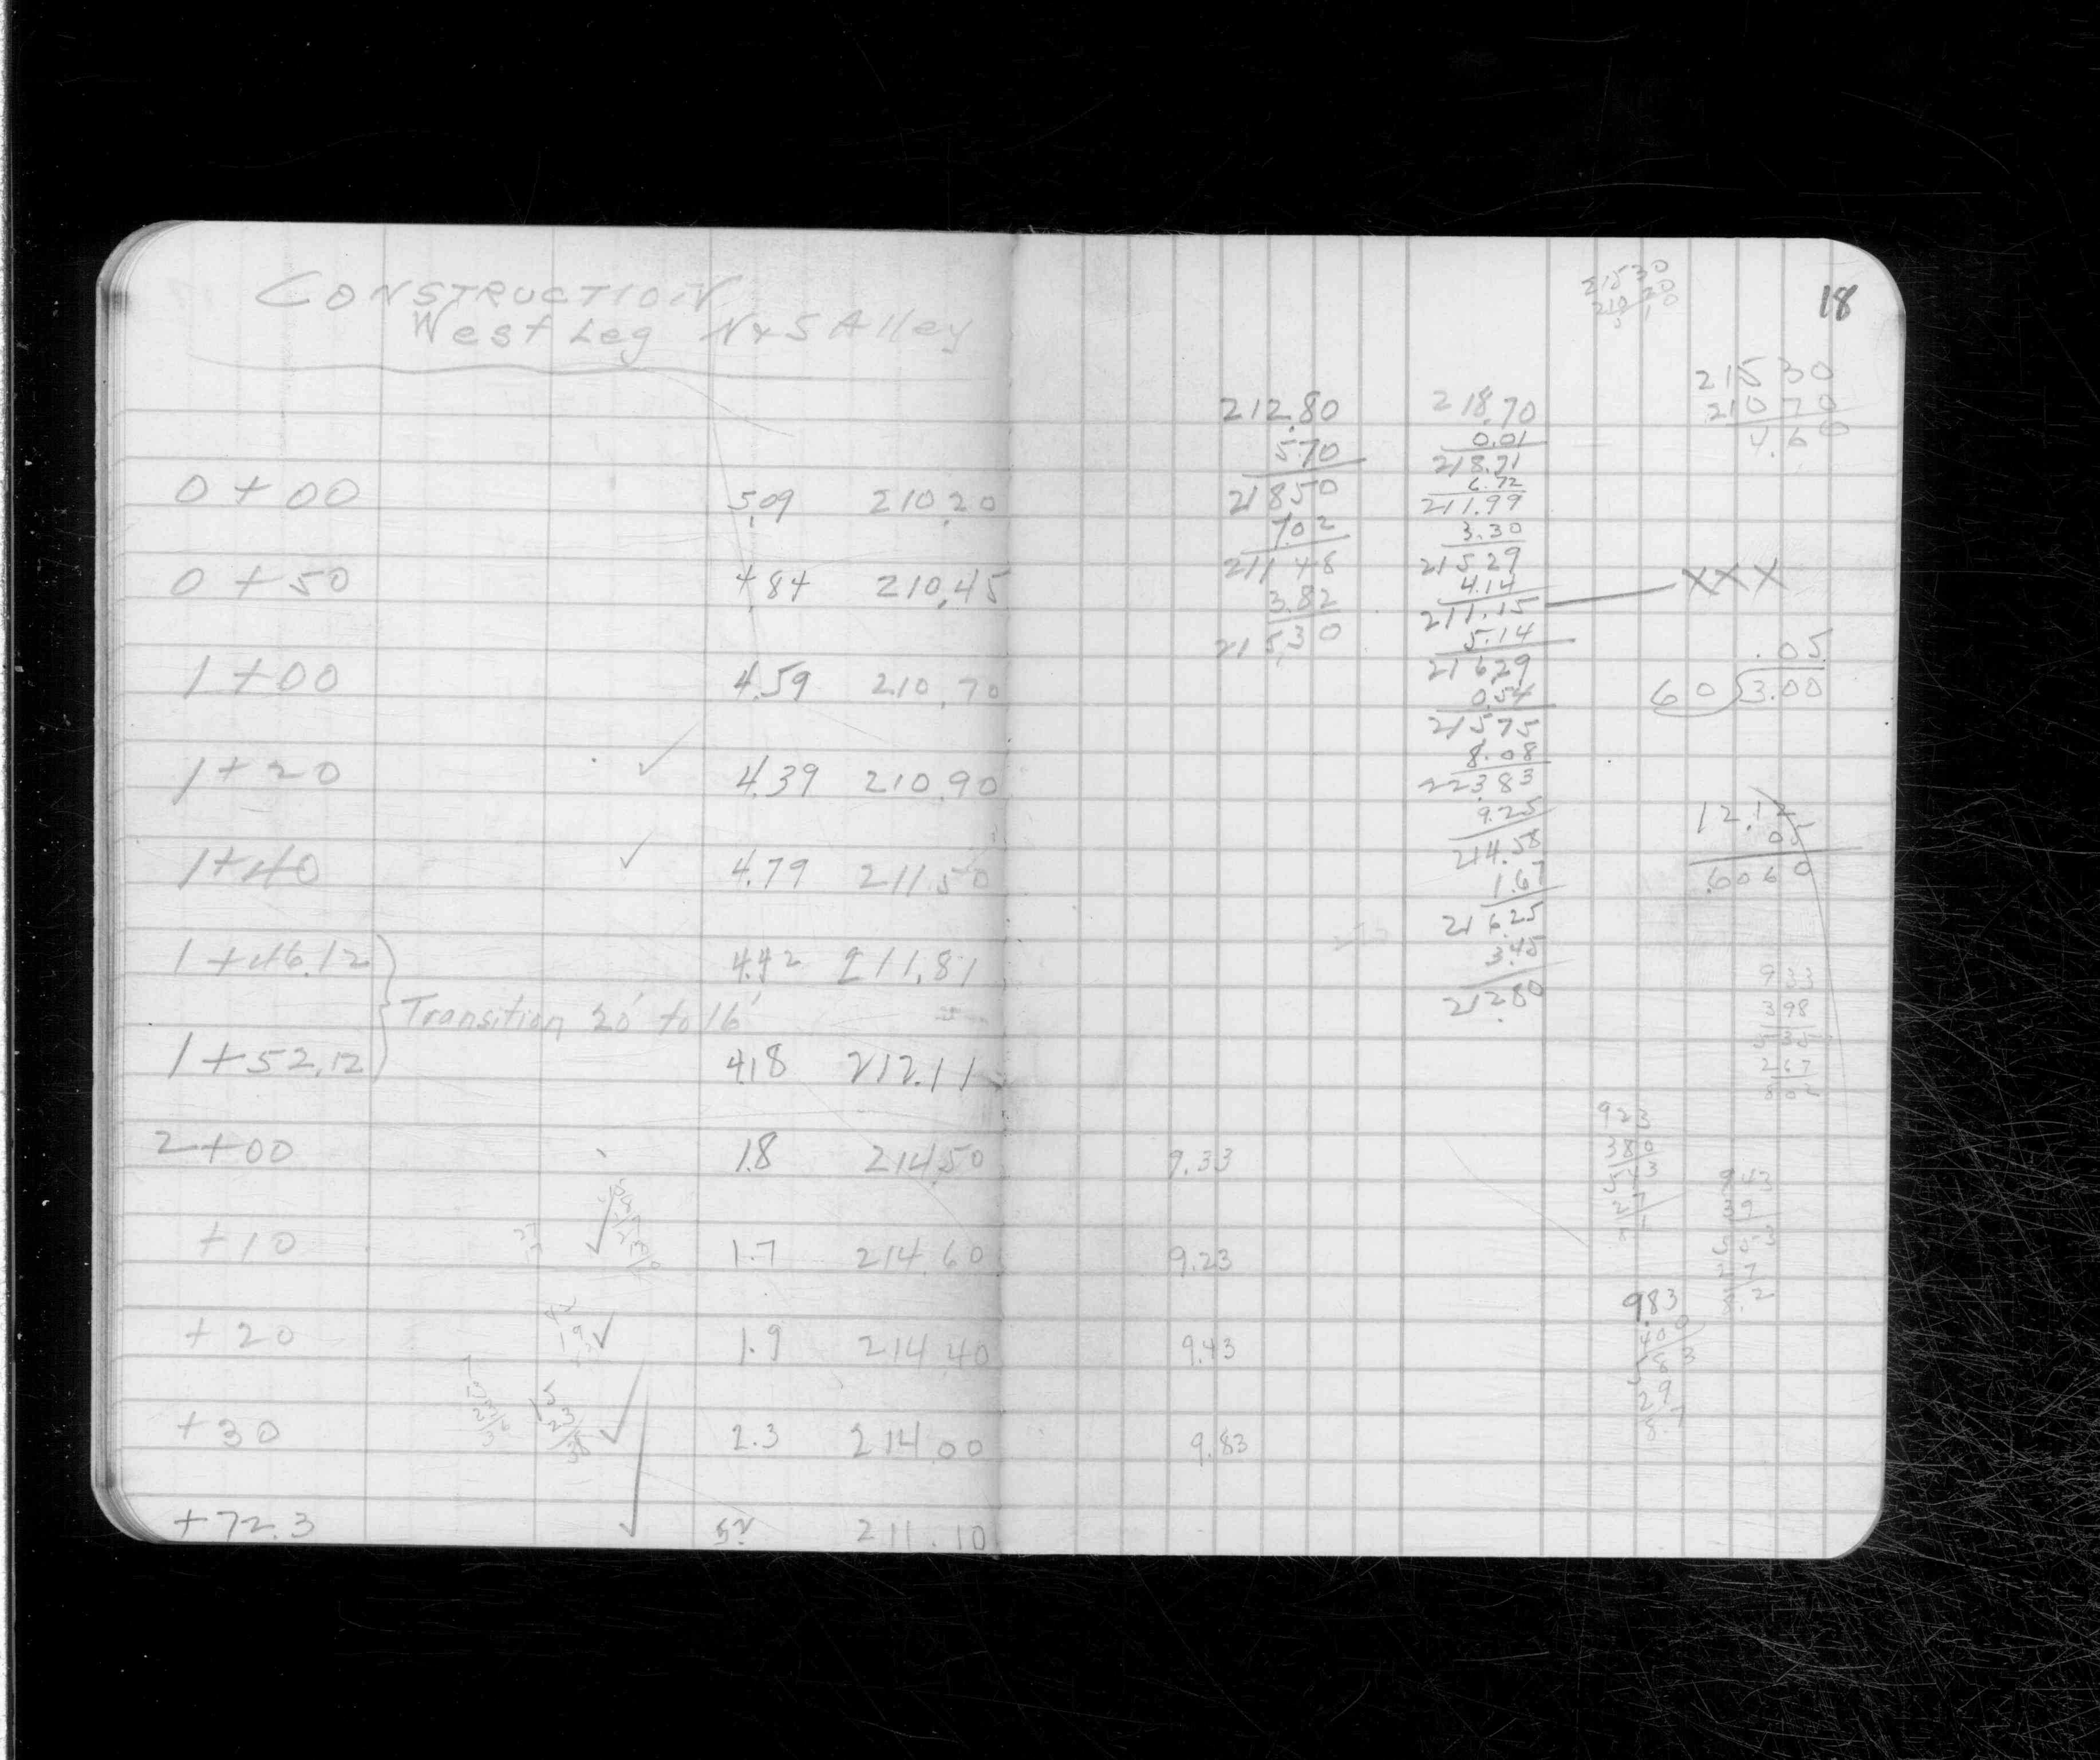 CONSTRUCTION
West Leg N & S Alley
0+00 5.09 210.20
0+50 4.84 210.45
1+00 4.59 210.70
1+20 ✓ 4.39 210.90
1+40 ✓ 4.79 211.50
1+46.12 4.42 211.81
Transition 20' to 16'
1+52.12 4.18 212.11
2+00 1.8 214.50
+10 ✓ 1.7 214.60
+20 ✓ 1.9 214.40
+30 ✓ 2.3 214.00
+72.3 ✓ 5.2 211.10
18
212.80
5.70
218.50
7.02
211.48
3.82
215.30
218.70
0.01
218.71
6.72
211.99
3.30
215.29
4.14
211.15 XXX
5.14
216.29
0.54
215.75
8.08
223.83
9.25
214.58
1.67
216.25
3.45
212.80
215 30
210 20
5 10
215 30
210 70
4.60
.05
60 3.00
12.12
05
.6060
9.33
9.23
9.43
9.83
933
398
535
267
802
923
380
543
27
943
39
983
400
583
29
8.7